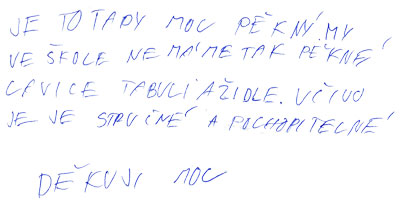 JE TO TADY MOC PĚKNÝ. MY
VE ŠKOLE NEMÁME TAK PĚKNÉ
LAVICE TABULI A ŽIDLE. UČIVO
JE JE STRUČNÉ A POCHOPITELNÉ
DĚKUJI MOC